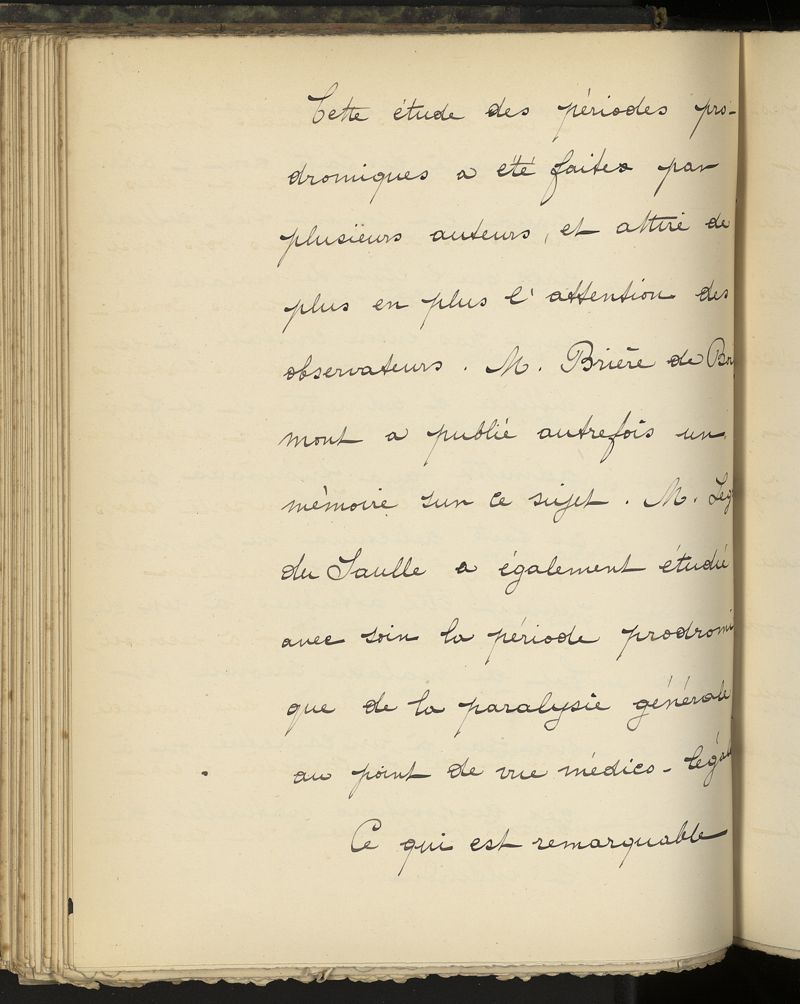 Cette étude des périodes pro-
dromiques a été faites par
plusieurs auteurs, et attiré de
plus en plus l'attention des
observateurs. M. Brière de Bri
mont a publié autrefois un
mémoire sur ce sujet. M. Leg
du Saulle a également étudié
avec soin la période prodromi
que de la paralysie générale
au point de vue médico-légal
Ce qui est remarquable